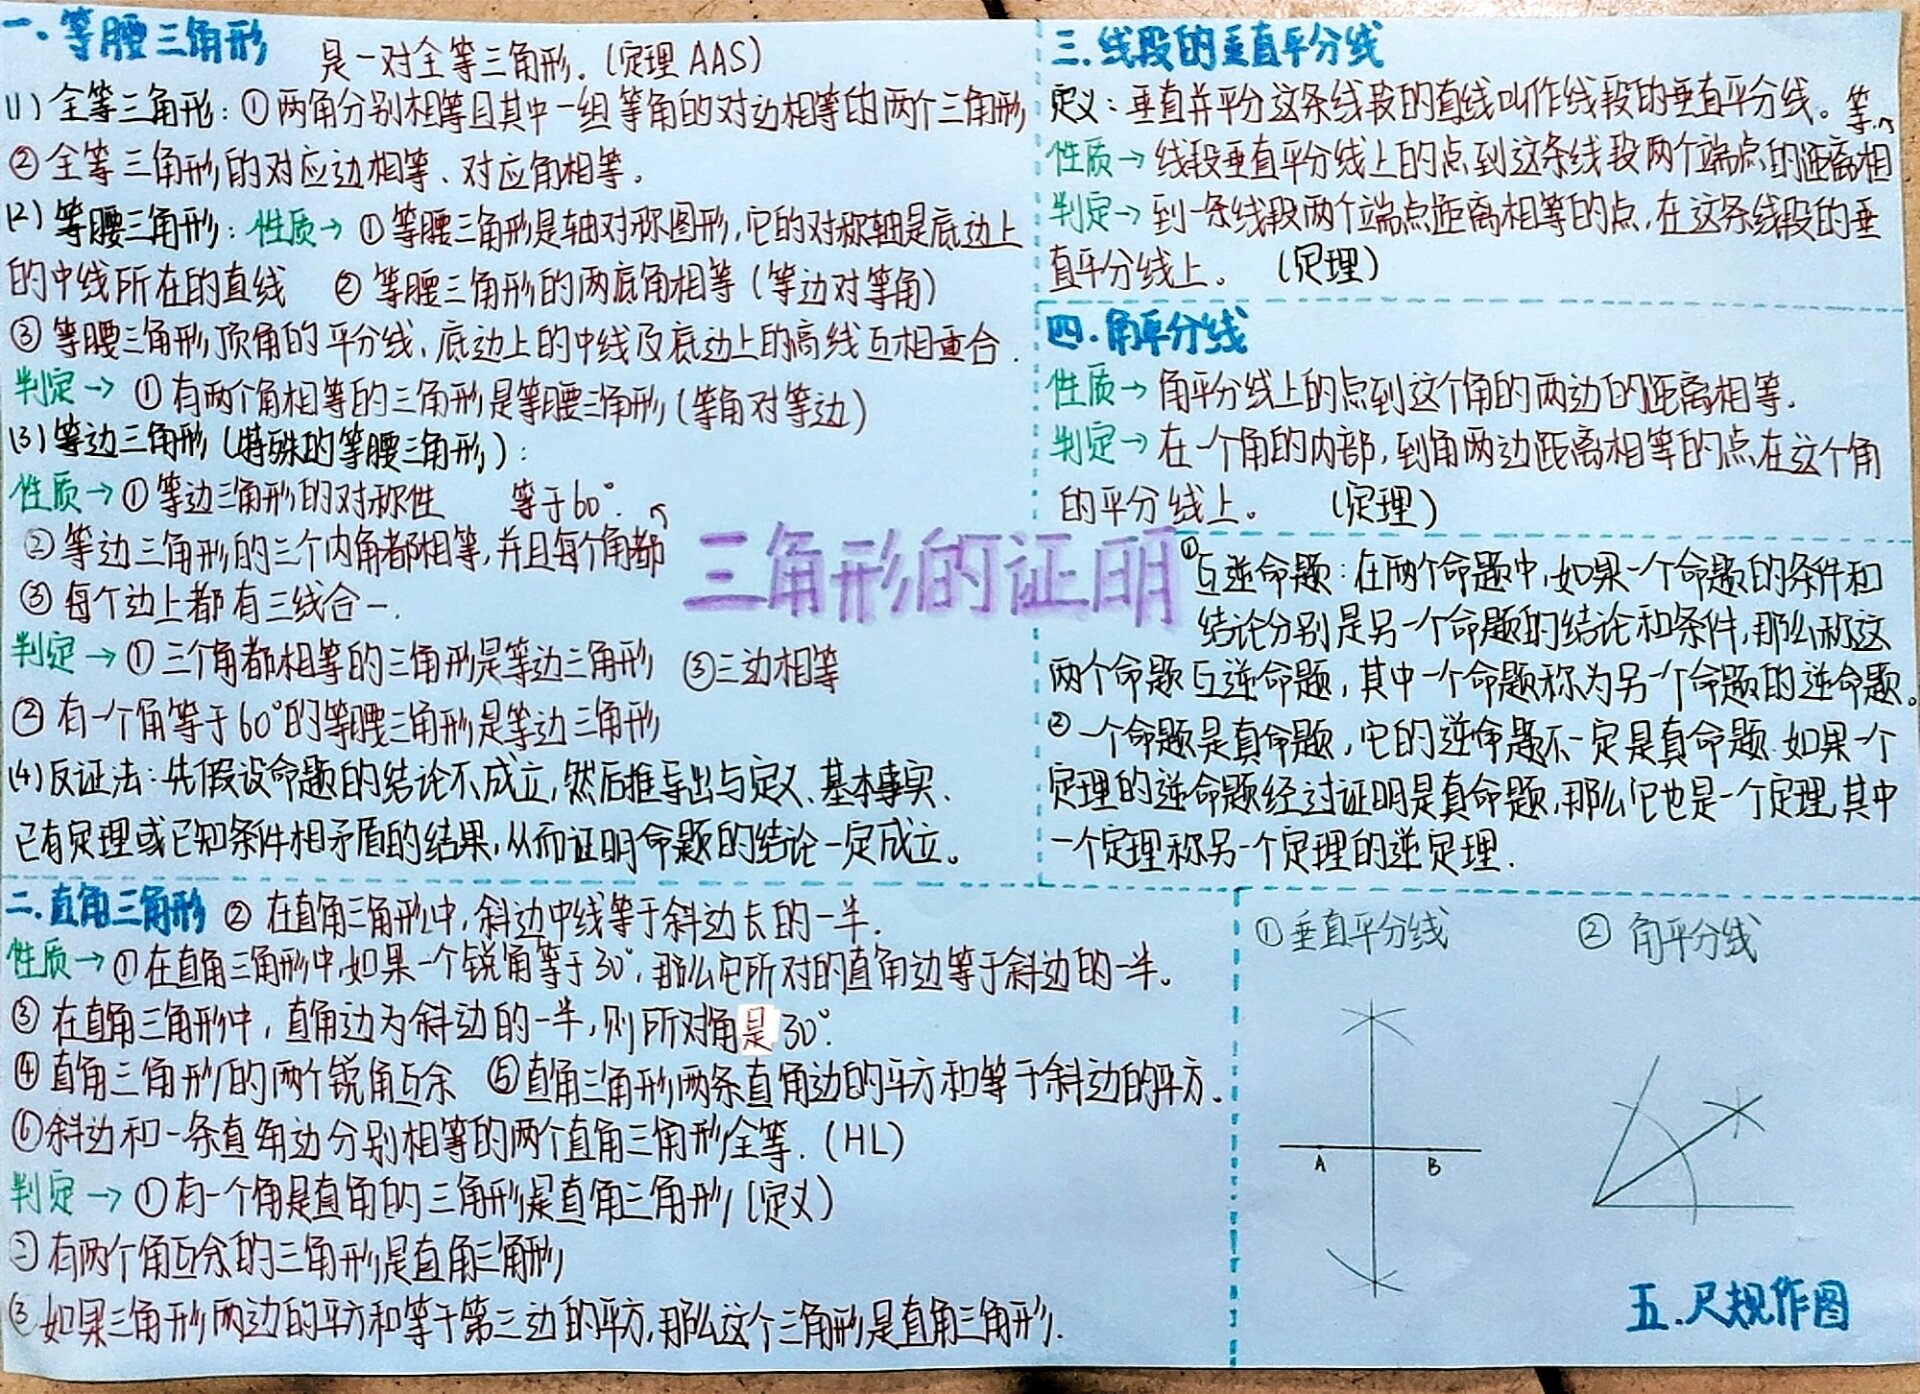 一.等腰三角形
是一对全等三角形.(定理AAS)
(1)全等三角形:①两角分别相等且其中一组等角的对边相等的两个三角形
②全等三角形的对应边相等、对应角相等。
(2)等腰三角形:性质→①等腰三角形是轴对称图形,它的对称轴是底边上
的中线所在的直线 ②等腰三角形的两底角相等(等边对等角)
③等腰三角形顶角的平分线、底边上的中线及底边上的高线互相重合.
判定→①有两个角相等的三角形是等腰三角形(等角对等边)
(3)等边三角形(特殊的等腰三角形):
性质→①等边三角形的对称性 等于60°.
②等边三角形的三个内角都相等,并且每个角都
③每个边上都有三线合一.
判定→①三个角都相等的三角形是等边三角形 ③三边相等
②有一个角等于60°的等腰三角形是等边三角形
(4)反证法:先假设命题的结论不成立,然后推导出与定义、基本事实、
已有定理或已知条件相矛盾的结果,从而证明命题的结论一定成立。
三角形的证明
二.直角三角形 ②在直角三角形中,斜边中线等于斜边长的一半.
性质→①在直角三角形中,如果一个锐角等于30°,那么它所对的直角边等于斜边的一半。
③在直角三角形中,直角边为斜边的一半,则所对角是30°.
④直角三角形的两个锐角互余 ⑤直角三角形两条直角边的平方和等于斜边的平方.
⑥斜边和一条直角边分别相等的两个直角三角形全等.(HL)
判定→①有一个角是直角的三角形是直角三角形(定义)
②有两个角互余的三角形是直角三角形
③如果三角形两边的平方和等于第三边的平方,那么这个三角形是直角三角形.
三.线段的垂直平分线
定义:垂直并平分这条线段的直线叫作线段的垂直平分线。等.
性质→线段垂直平分线上的点到这条线段两个端点的距离相
判定→到一条线段两个端点距离相等的点,在这条线段的垂
直平分线上。 (定理)
四.角平分线
性质→角平分线上的点到这个角的两边的距离相等.
判定→在一个角的内部,到角两边距离相等的点在这个角
的平分线上。 (定理)
①互逆命题:在两个命题中,如果一个命题的条件和
结论分别是另一个命题的结论和条件,那么称这
两个命题互逆命题,其中一个命题称为另一个命题的逆命题。
②一个命题是真命题,它的逆命题不一定是真命题.如果一个
定理的逆命题经过证明是真命题,那么它也是一个定理,其中
一个定理称另一个定理的逆定理.
①垂直平分线 ②角平分线
A B
五.尺规作图